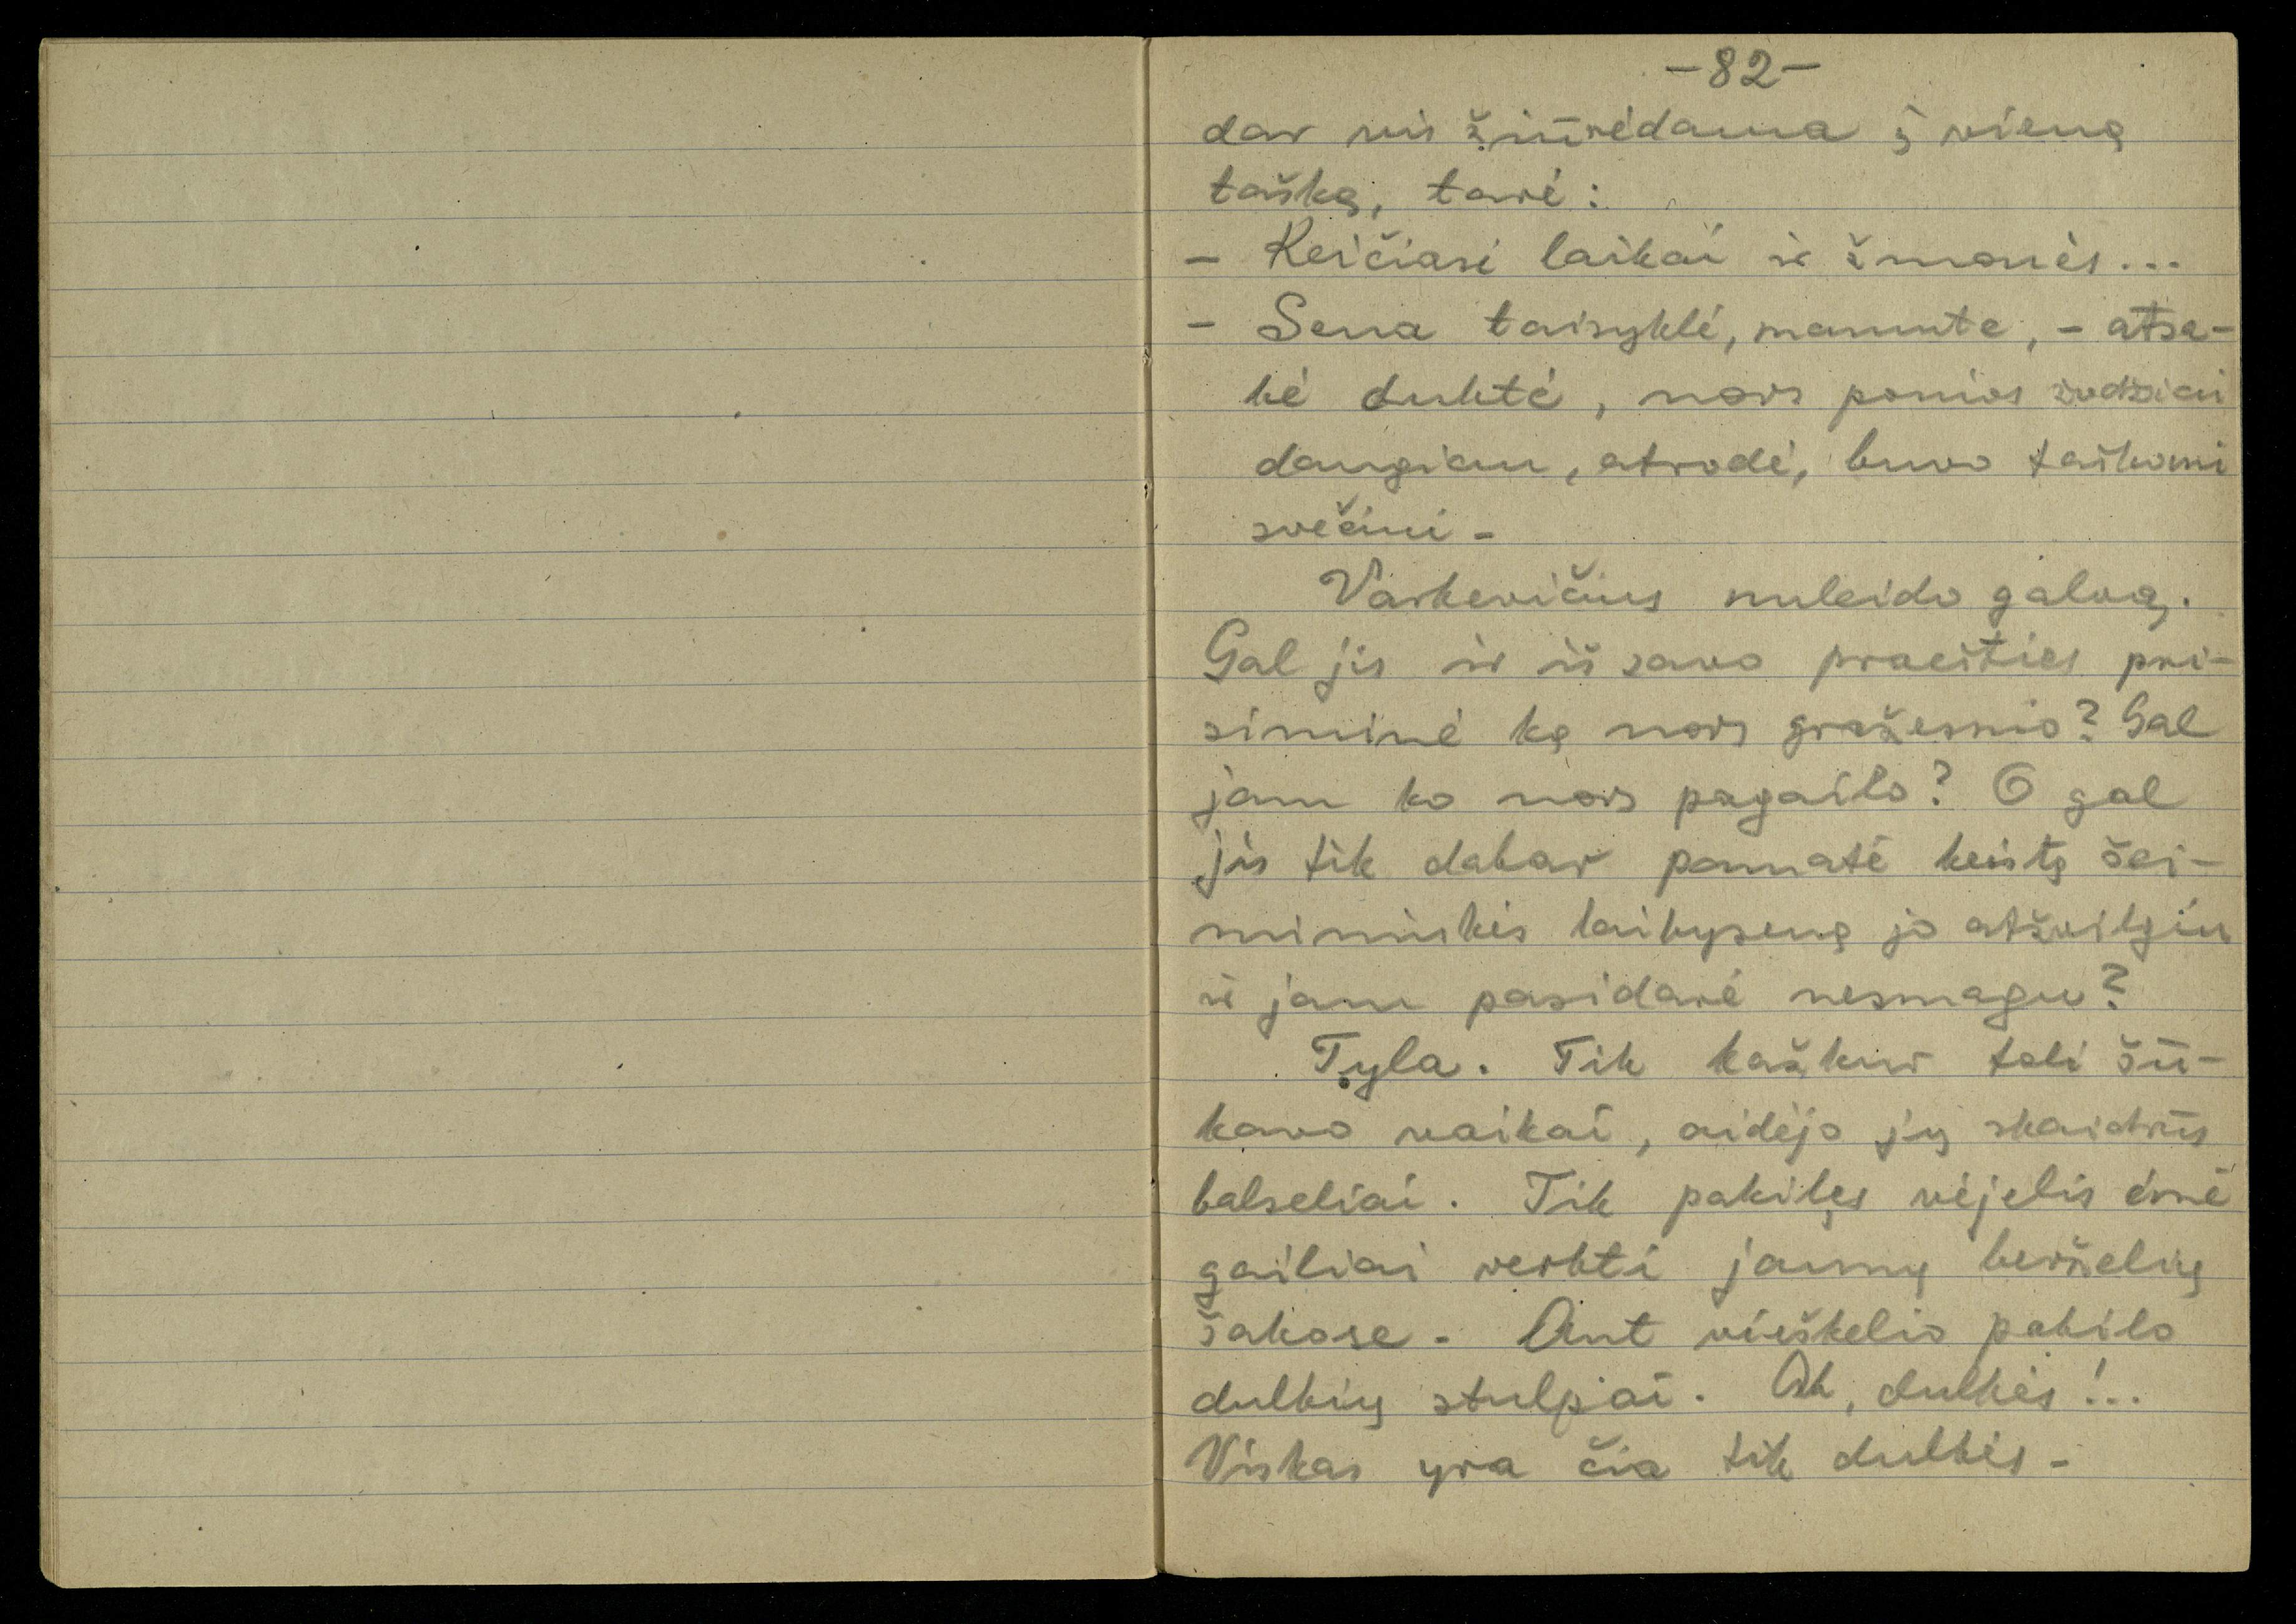 -82-
dar vis žiūrėdama į vieną
tašką, tarė:
- Keičiasi laikai ir žmonės...
- Sena taisyklė, mamute, - atsa-
kė duktė, nors ponios žodžiai
daugiau, atrodė, buvo taikomi
svečiui -
Varkevičius nuleido galvą.
Gal jis ir iš savo praeities pri-
siminė ką nors gražesnio? Gal
jam ko nors pagailo? O gal
jis tik dabar pamatė keistą šei-
mininkės laikyseną jo atžvilgiu
ir jam pasidarė nesmagu?
Tyla. Tik kažkur toli šū-
kavo vaikai, aidėjo jų skaidrūs
balseliai. Tik pakilęs vėjelis ėmė
gailiai verkti jaunų berželių
šakose - Ant vieškelio pakilo
dulkių stulpai. Ak, dulkės!..
Viskas yra čia tik dulkės -